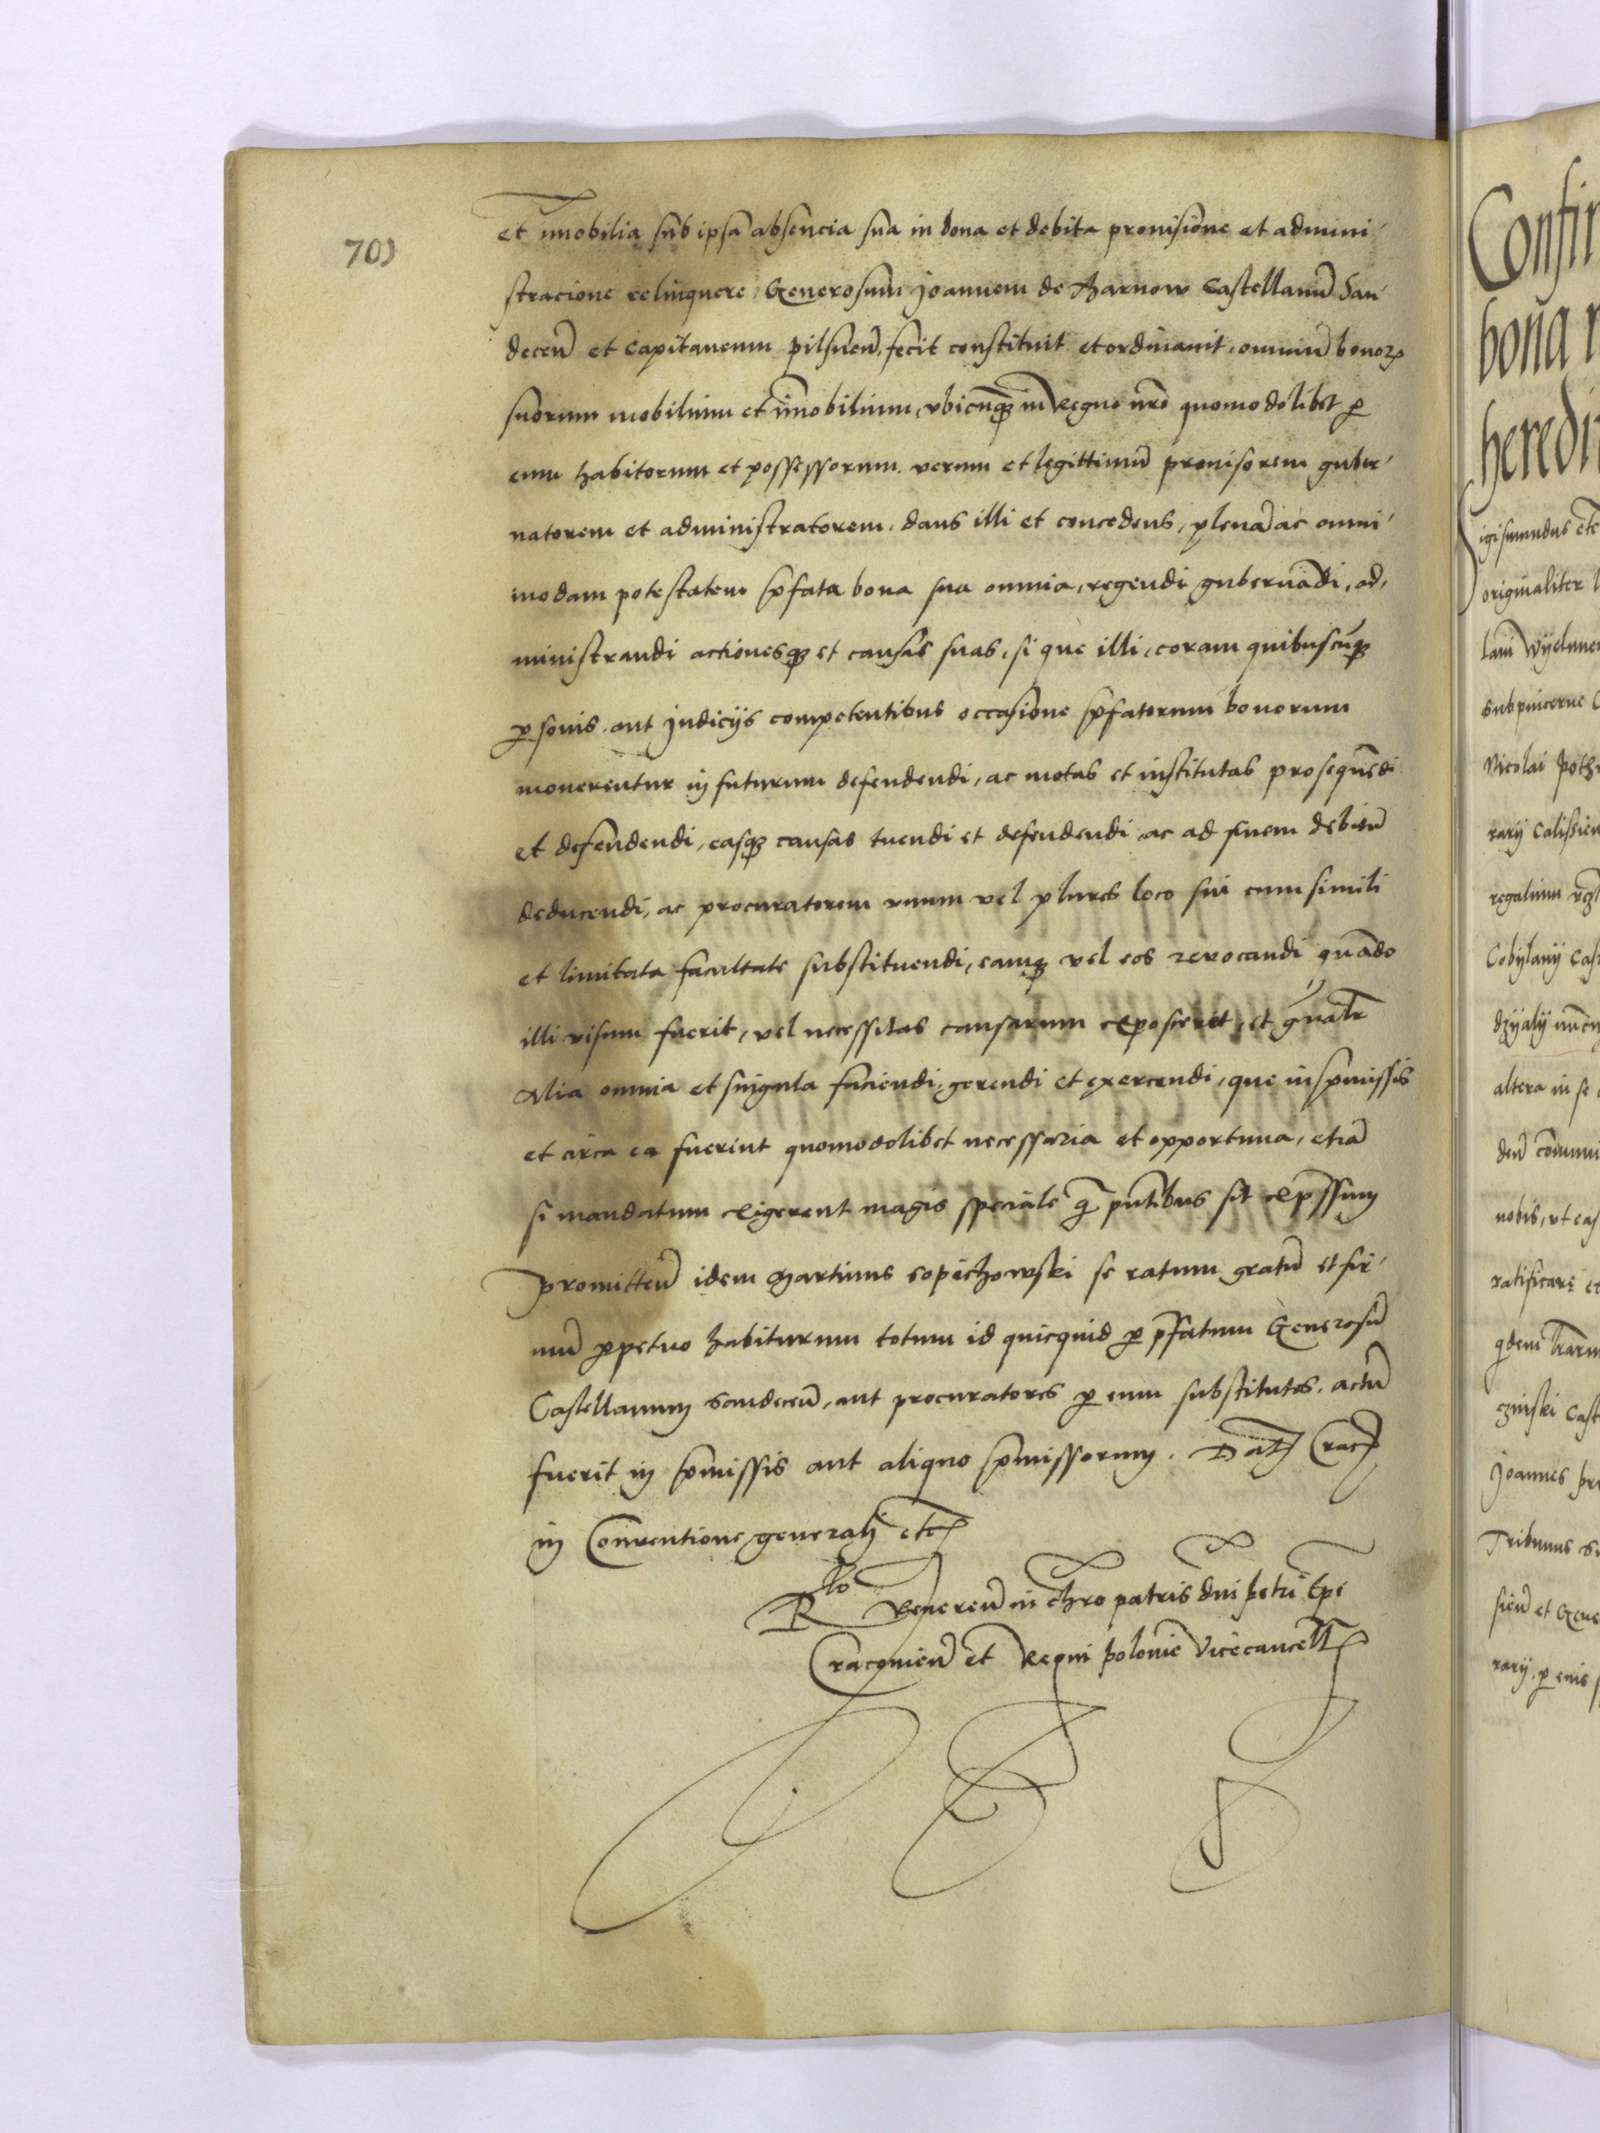 70)
et imobilia sub ipsa absencia sua in bona et debita prouisione et admini-
stracione relinquere, Generosum Joannem de Tharnow Castellanũ San-
deceñ et Capitaneum pilsneñ, fecit constituit et ordinauit, omniũ bonorꝝ
suorum mobilium et ĩmobilium, vbicũqꝫ in Regno nrõ quomodolibet ꝑ
eum habitorum et possessorum. verum et legittimũ prouisorem guber-
natorem et administratorem. dans illi et concedens, plenã ac omni-
modam potestatem p̃fata bona sua omnia, regendi gubernãdi, ad-
ministrandi actionesqꝫ et causas suas, si que illi, coram quibuscũqꝫ
ꝑsonis, aut Judicijs competentibus occasione p̃fatorum bonorum
mouerentur in futurum defendendi, ac motas et institutas prosequẽdi
et defendendi, easqꝫ causas tuendi et defendendi ac ad finem debitũ
deducendi, ac procuratorem vnum vel plures loco sui cum simili
et limitata facultate substituendi, eumqꝫ vel eos reuocandi quãdo
illi visum fuerit, vel necessitas causarum exposcerit, et gñalr̃
Alia omnia et singula faciendi, gerendi et exercendi, que in p̃missis
et circa ea fuerint quomodolibet necessaria et opportuna, etiã
si mandatum exigerent magis speciale q̃ p̃ntibus sit exp̃ssum
promitteñ idem Martinus sopichowski se ratum gratũ et fir-
mũ ꝑpetuo habiturum totum id quicquid ꝑ p̃fatum Generosũ
Castellanum Sandeceñ, aut procuratores ꝑ eum substitutos, actũ
fuerit in p̃missis aut aliquo p̃missorum. Dat̃ Crac̃
in Conuentione generali etc̃
R^lo Reuereñ in chr̃o patris dñi petri Ep̃i
Cracouieñ et Regni polonie Vicecancell̃
Confir
bona
heredi
igismundus etc̃
originaliter
subpincerne
Nicolai poth
rarij Calissieñ
regalium
Cobylany Cas
altera in se
deñ commu
nobis, vt eas
ratificare et
czinski Cast
Joannes
Tribunus
sieñ et Gene
rarij. ꝑ eius